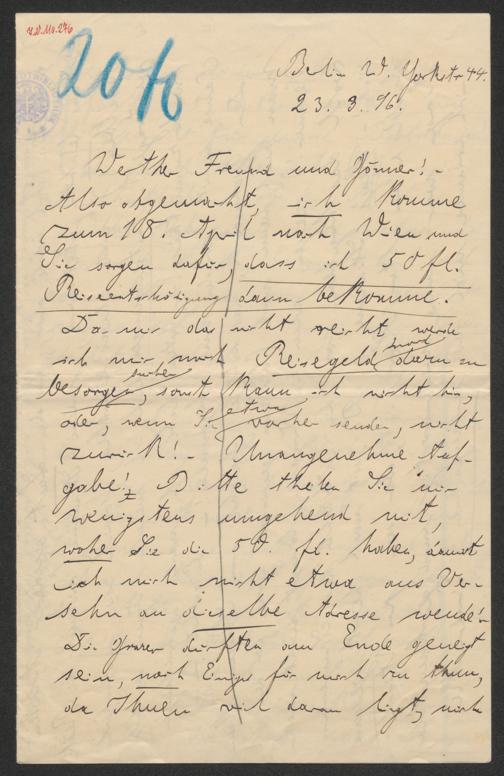 I.N. Mo. 276
20 fl
Berlin W. Yorkstr 44.
23. 3. 96.
Werther Freund und Gönner! -
Also abgemacht, ich komme
zum 18. April nach Wien und
Sie sorgen dafür, dass ich 50 fl.
Reiseentschädigung dann bekomme.
Da mir das nicht reicht werde
ich mir noch Reisegeld dazu zu
besorgen suchen, sonst kann ich nicht hin,
oder, wenn Sie etwa vorher senden, nicht
zurück! - Unangenehme Auf-
gabe! Bitte theilen Sie mir
wenigstens umgehend mit,
woher Sie die 50. fl. haben, damit
ich mich nicht etwa aus Ver-
sehn an dieselbe Adresse wende!
Die Grazer dürften am Ende geneigt
sein, noch Einiges für mich zu thun,
da Ihnen viel daran liegt, mich